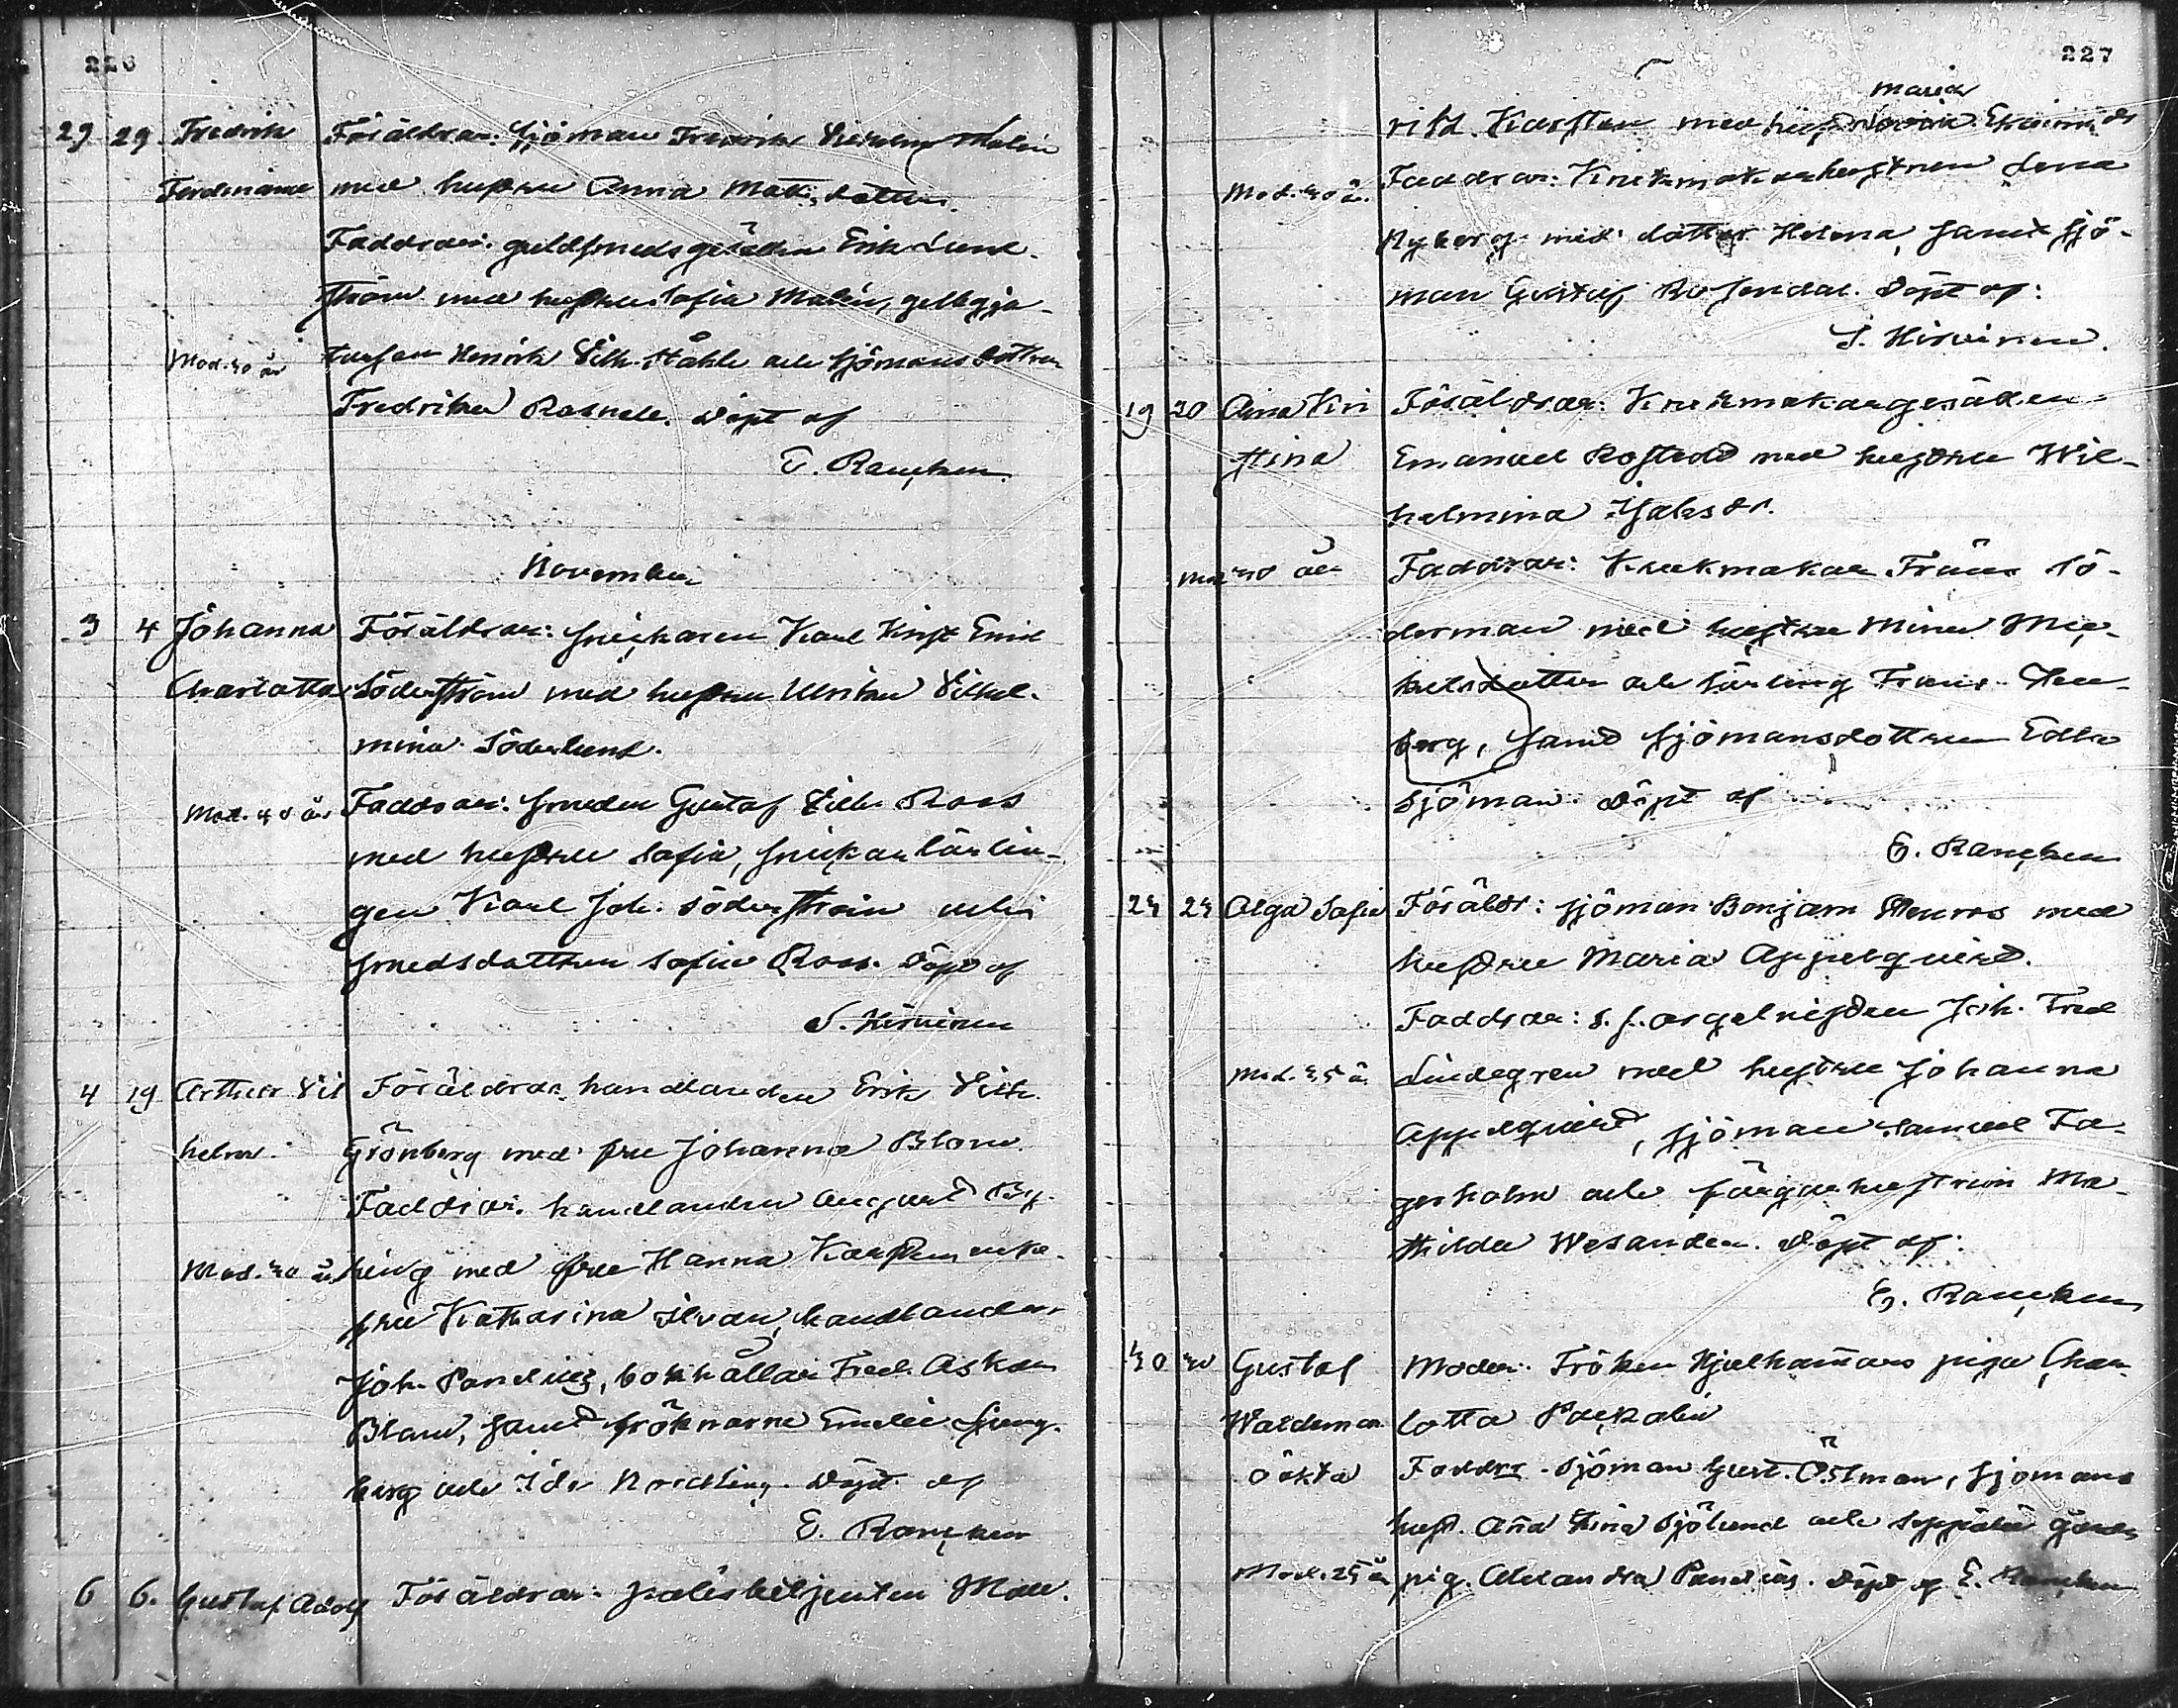 226
29 29. Fredrik Föräldrar: Sjöman Fredrik Malin
Ferdinand med hustru Anna Matts dotter.
Faddrar: guldsmedsgesällen Erik Lund-
ström med hustru Sofia Malin, gelbgju-
Mod. 30 år Henrik Vilh. Ståhle och sjömans dottren
Fredrika Rosnell. Döpt af
E. Rancken.
November
3 4 Johanna Föräldrar: Snickaren Karl Krist. Emil
Charlotta Söderström med hustru Ulrika Vilhel-
mina Söderlund.
Mod. 40 år Faddrar: smeden Gustaf Vilh. Roos
med hustru Sofia, snickarlärlin-
gen Karl Joh. Söderström och
smedsdottren Sofia Roos. Döpt af
S. Hirvinen
4 19 Arthur Vil Föräldrar handlanden Erik Vilh.
helm. Grönberg med fru Johanna Blom.
Faddrar: handlanden August Ny-
Mod. 30 år med fru Hanna Karsten, enke-
fru Katharina handlanden
Joh. Pandius, bokhållar Fred. Askar
Blom, samt fröknarne Emelie Ljung-
berg och Ida Nordling. Döpt af
E. Rancken
6 6. Gustaf Adolf Föräldrar: polisbetjenten Matt.
227
Maria
rits Karsten med hust. Lovisa
Mod. 30 år. Faddrar: Krukmakarhustrun Lena
Nyberg med dotter Helena, samt sjö-
man Gustaf Rosendal. Döpt af:
S. Hirvinen.
19 20 Anna Kri Föräldrar: Krukmakargesällen
stina Emanuel Rostedt med hustru Wil-
helmina Isaksdr.
Mod 30 år Faddrar: Krukmakar Frans Sö-
derman med hustru Mina Mic-
kelsdotter och lärling Frans Hen-
berg, samt sjömansdottren Edla
Sjöman. Döpt af
E. Rancken
24 24 Olga Sofia Föräldr: sjöman Benjam Stenroos med
hustru Maria Appelqvist.
Faddrar: d. s. orgelnisten Joh. Fred
Mod. 35 år Lindegren med hustru Johanna
Appelqvist, sjöman Samuel Fa-
gerholm och färgarhustrun Ma-
thilda Wesander. Döpt af:
E. Rancken
30 30 Gustaf Moder: Fröken Hjelhamars piga Char-
Waldemar lotta Packalin
oäkta Faddrr. sjöman Gust. Östman, sjömans
hust. Anna Stina Sjölund och Seppälä gårds
Mod. 25 år pig. Alexandra Pandius. Döpt af E. Rancken